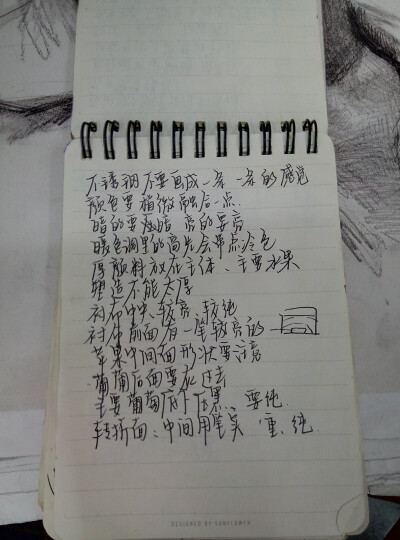 不锈钢不要画成一条一条的感觉
颜色要稍微融合一点.
暗的要暗 亮的要亮
暖色调里的高光会带点冷色
厚颜料放在主体、主要水果
塑造不能太厚
衬布中、较亮、较纯
衬布前面有一笔较亮的
苹果中间面形状要注意
葡萄后面要 过去
主要葡萄底下压黑、要纯.
转折面:中间用笔实 重、纯.
DESIGNED BY SUNFLOWER